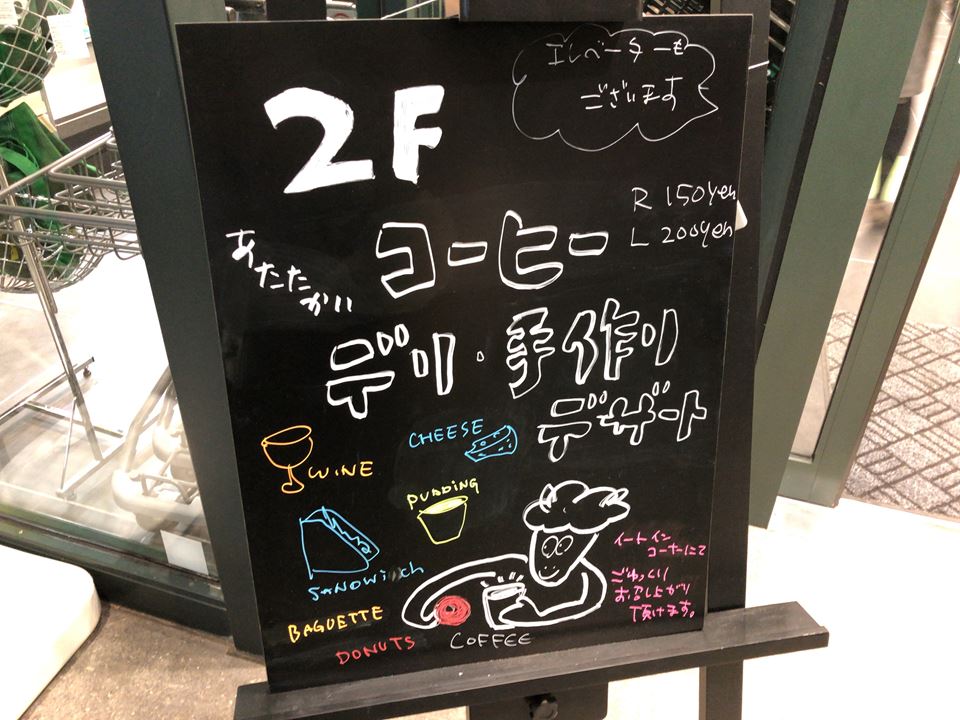 エレベーターも
ございます
2F
R 150yen
L 200yen
あたたかい
コーヒー
デリ・手作り
デザート
WINE
CHEESE
PUDDING
SANDWICH
BAGUETTE
DONUTS
COFFEE
イートイン
コーナーにて
ごゆっくり
お召し上がり
頂けます。